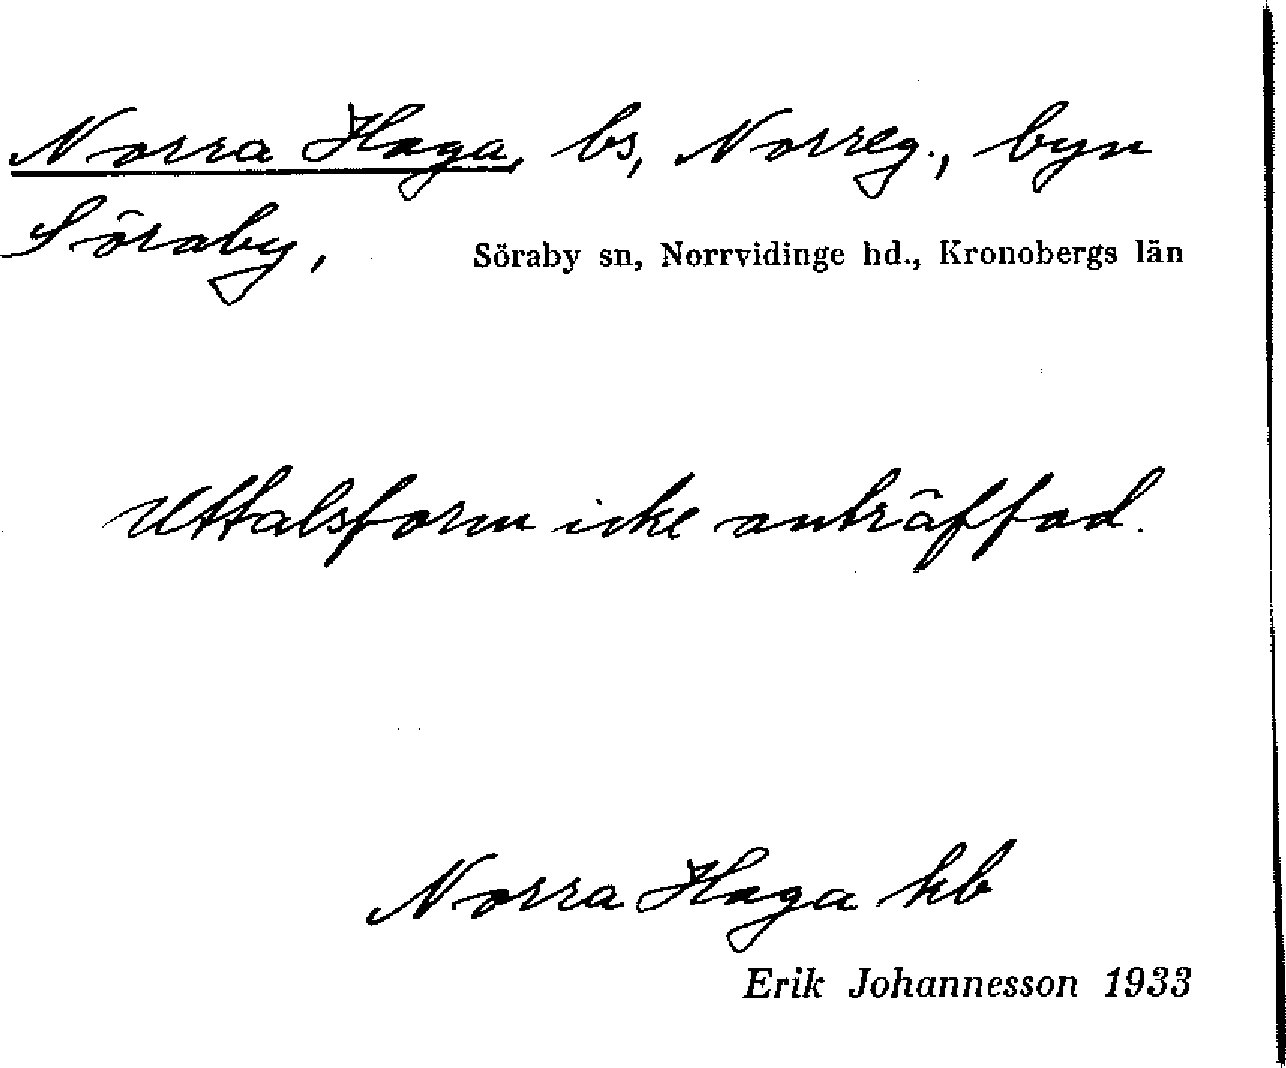 Norra Haga, bs, Norreg., byn
Söraby, Söraby sn, Norrvidinge hd., Kronobergs län
Uttalsform icke anträffad.
Norra Haga kb
Erik Johannesson 1933